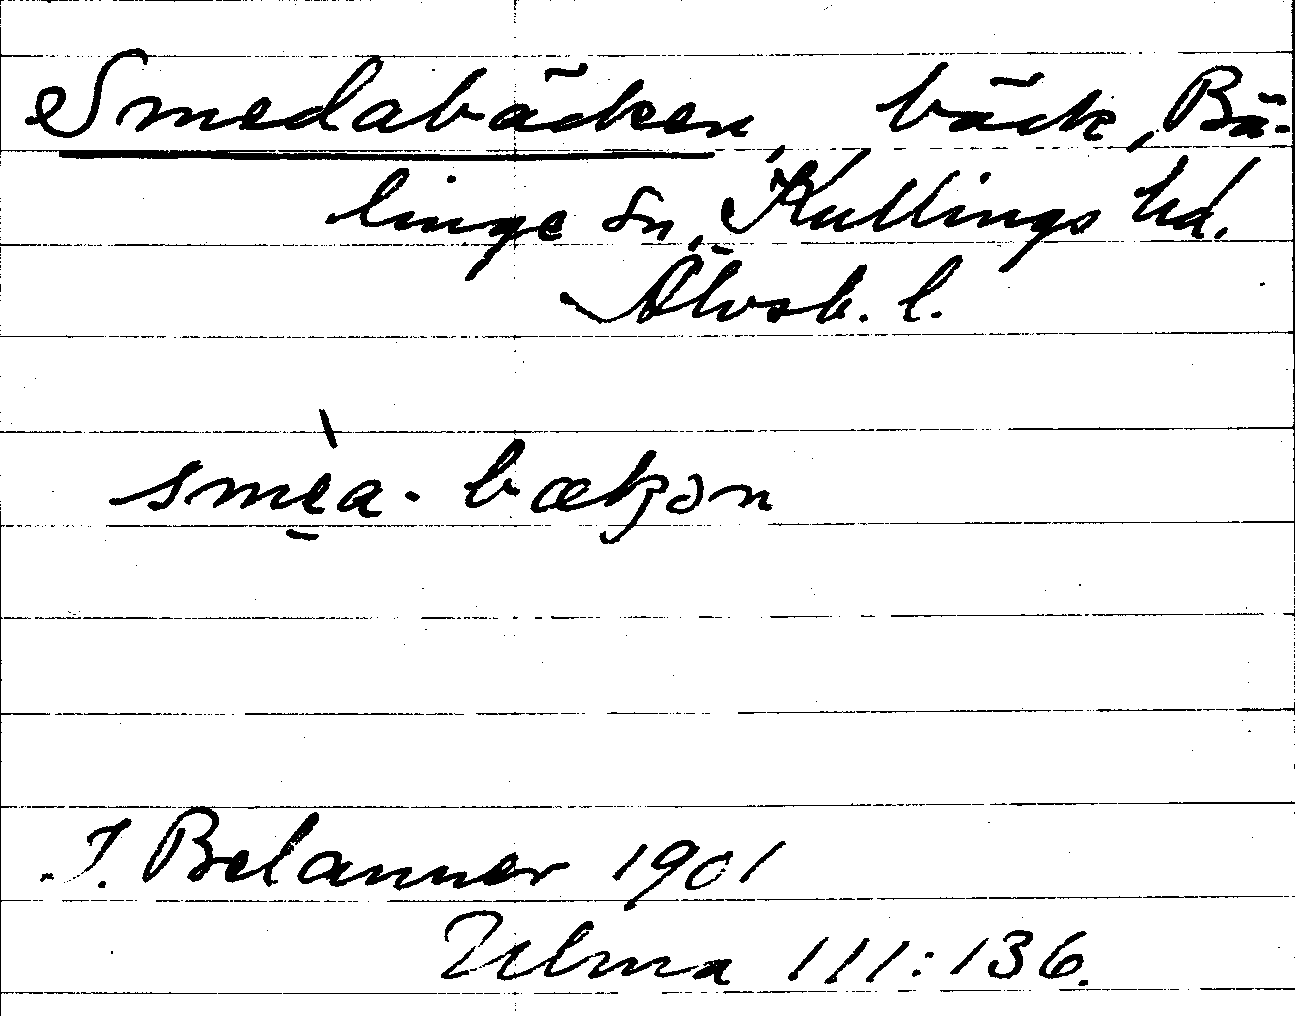 Smedabäcken, bäck, Bä-
linge sn, Kullings hd.
Älvsb. l.
smèa-bækən
J. Belanner 1901
Ulma 111:136.